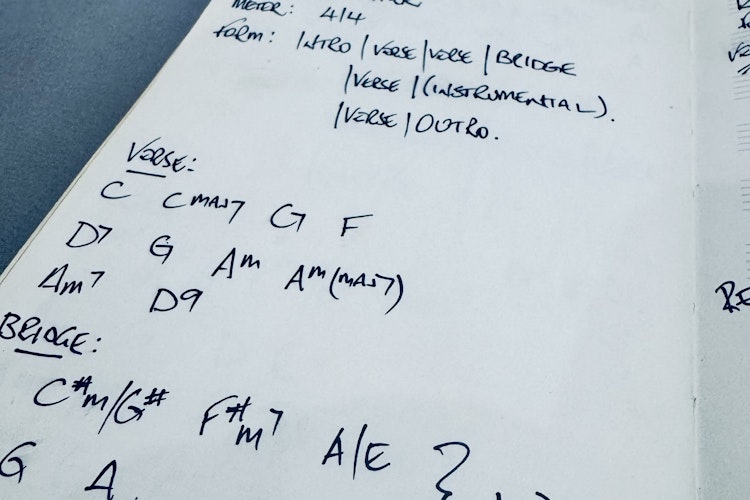 METER: 4/4
FORM: INTRO | VERSE | VERSE | BRIDGE
| VERSE | (INSTRUMENTAL).
| VERSE | OUTRO.
VERSE:
C Cmaj7 G F
D7 G Am Am(maj7)
Am7 D9
BRIDGE:
C#m/G# F#m7 A/E }
G A
RE